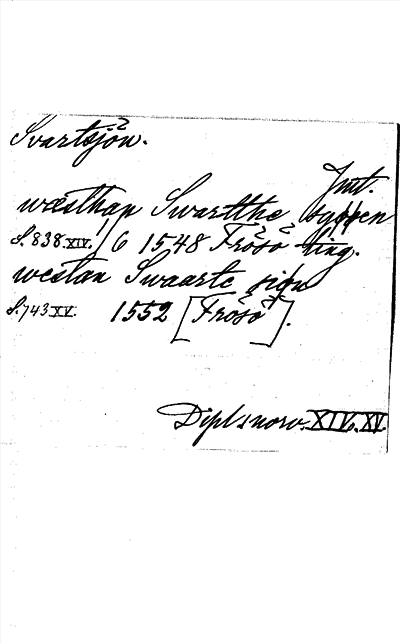 Svartsjön.
Jmt.
wæsthan Swartthe syøen
S. 838. XIV. 1/6 1548 Frösö ting.
westan Swaarte siøn
S. 743 XV. 1552 [Frösö].
Dipl. norv. XIV. XV.